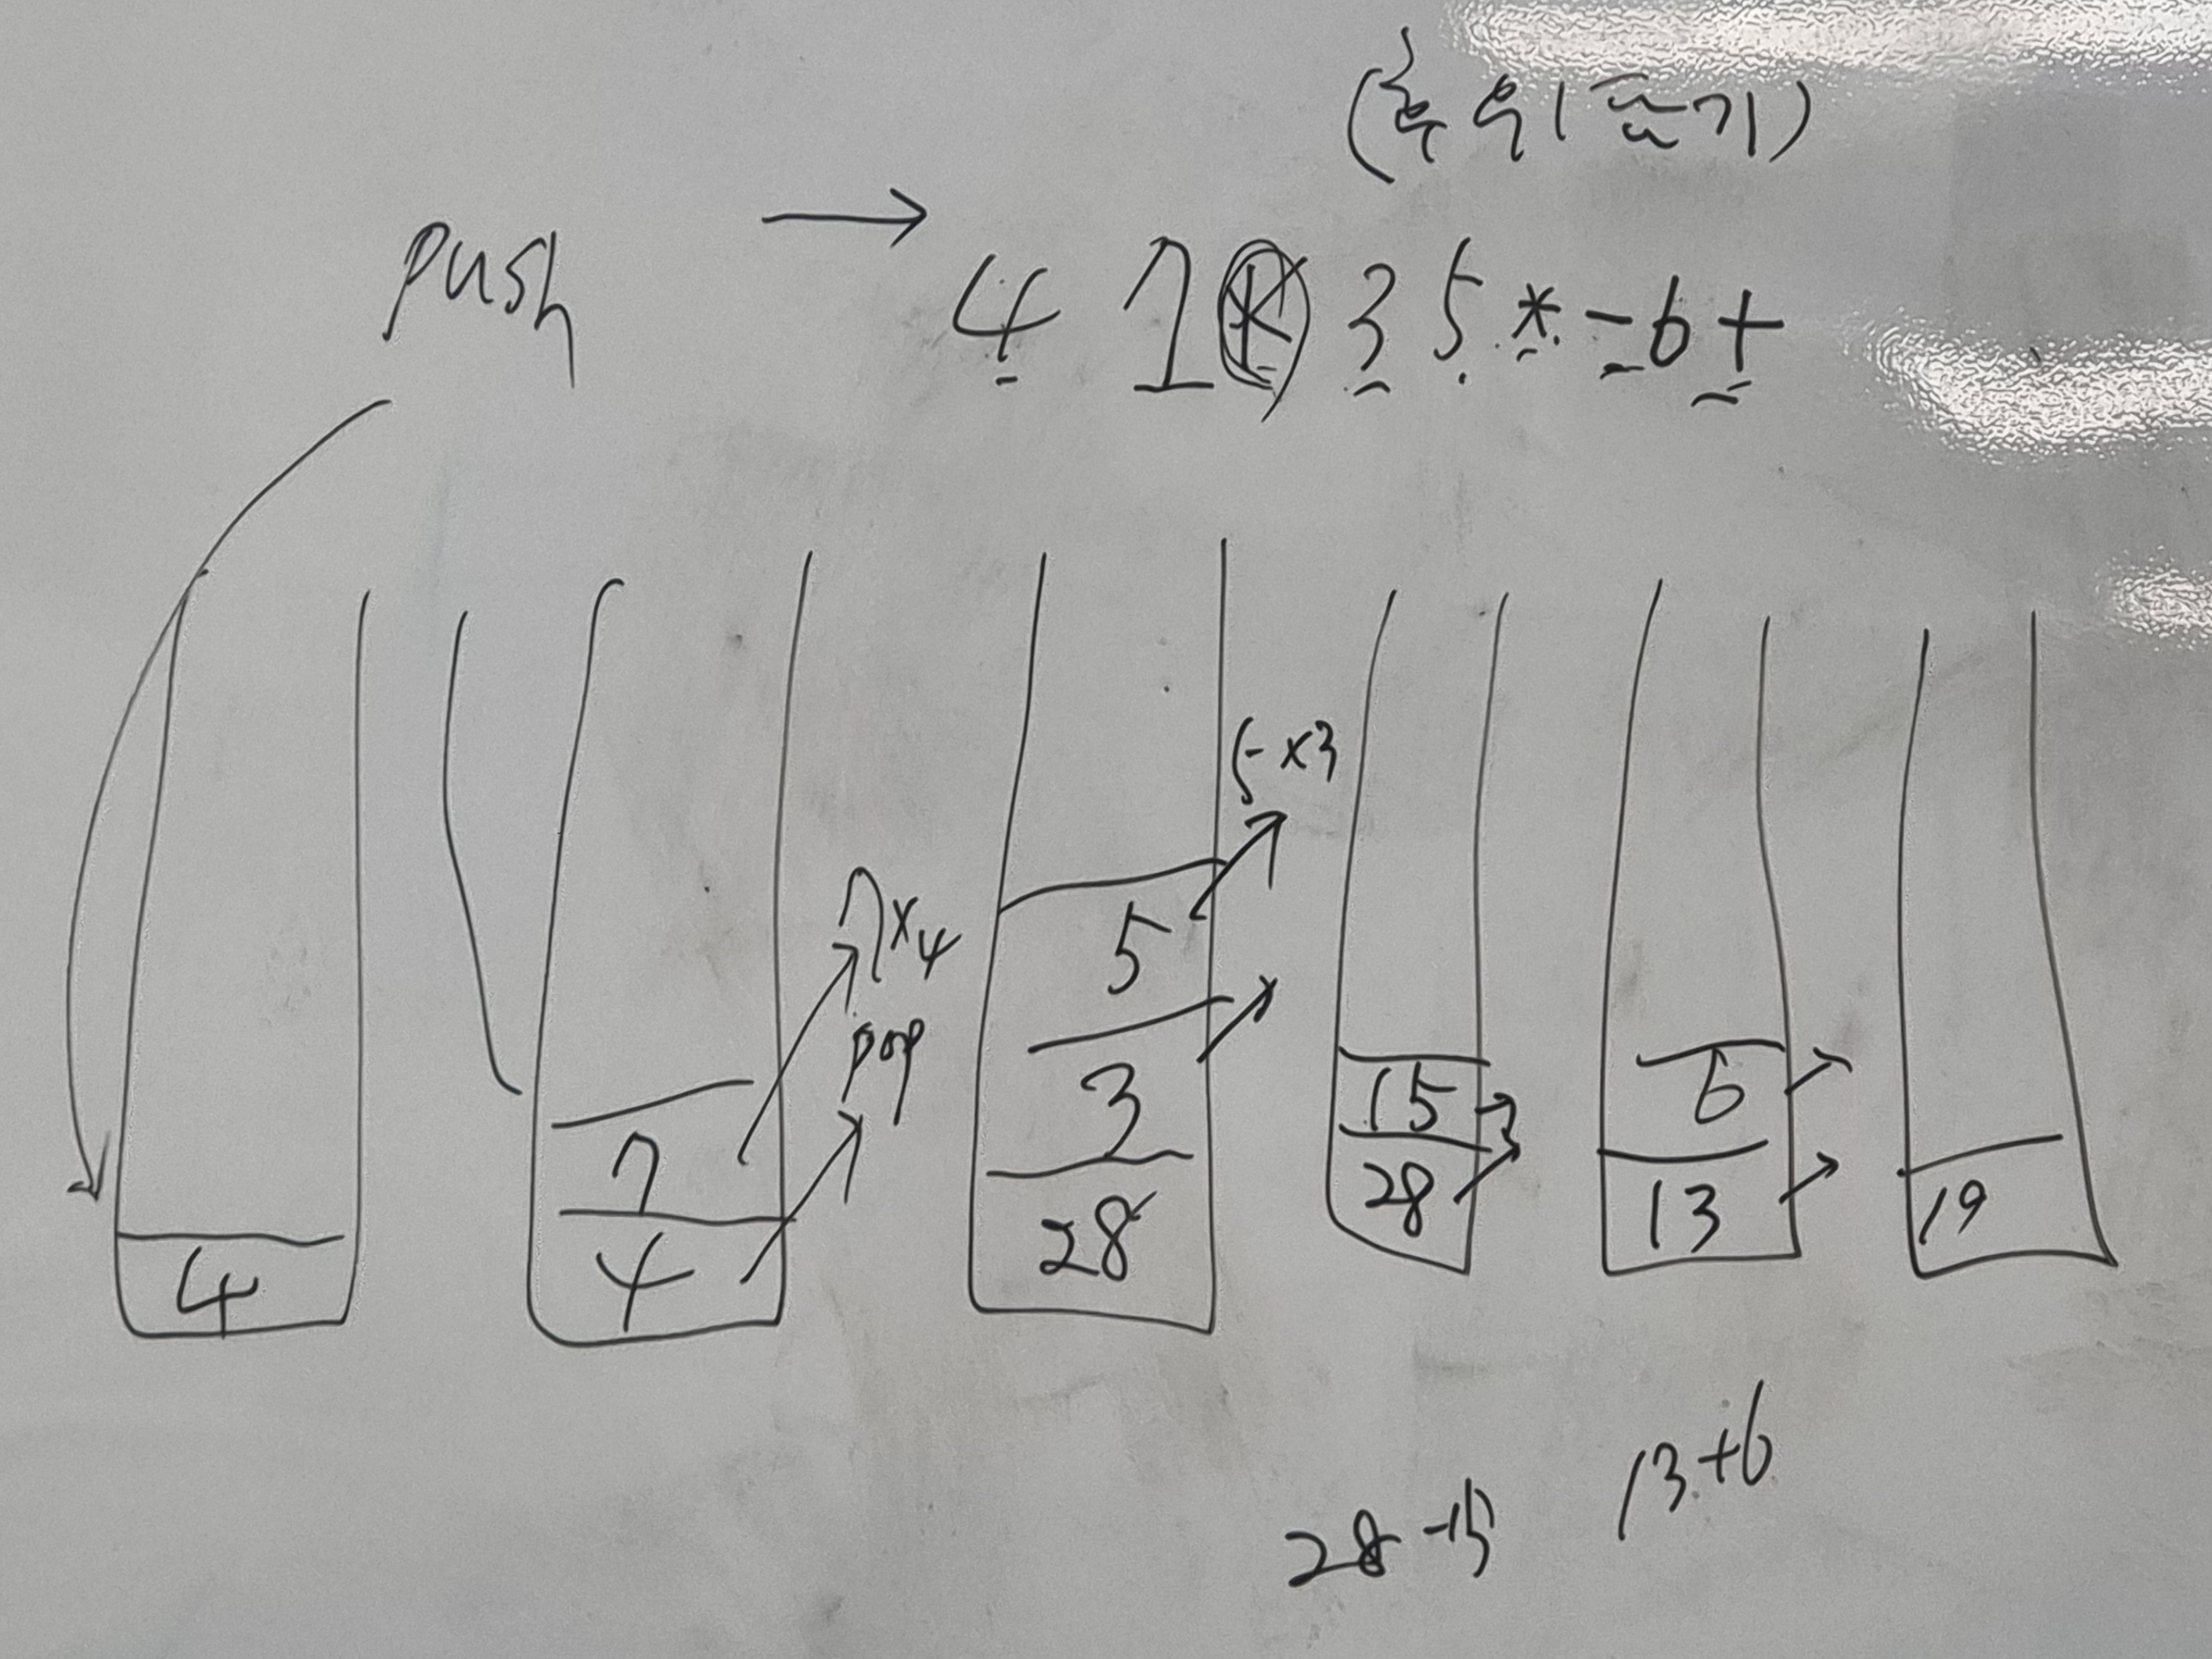 (후위표기)
push → 4 7 * 3 5 * - 6 +
5 x3
7x4
pop
5
3
28
7
4
4
15
28
6
13
19
28-15
13+6